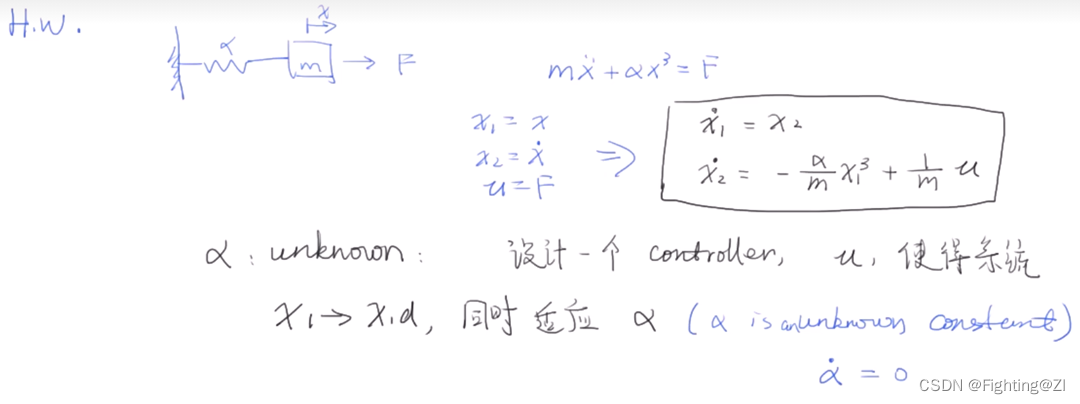 H.W.
x
α
m → F
mẍ + αx³ = F
x₁ = x
x₂ = ẋ
u = F
⇒
ẋ₁ = x₂
ẋ₂ = - α/m x₁³ + 1/m u
α : unknown : 设计一个 controller, u, 使得系统
x₁ → x₁d, 同时适应 α (α is an unknown constant)
α̇ = 0
CSDN @Fighting@ZI